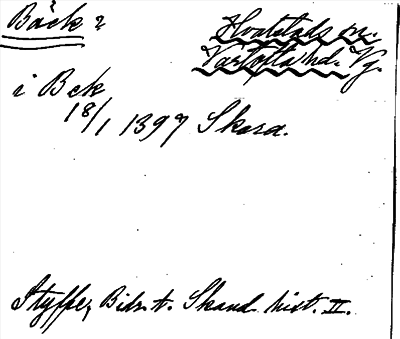 Bäck ?
Hvalstads sn.
Vartofta hd. Vg.
i Bek
18/1 1397 Skara.
Styffe, Bidr. t. Skand. hist. II.